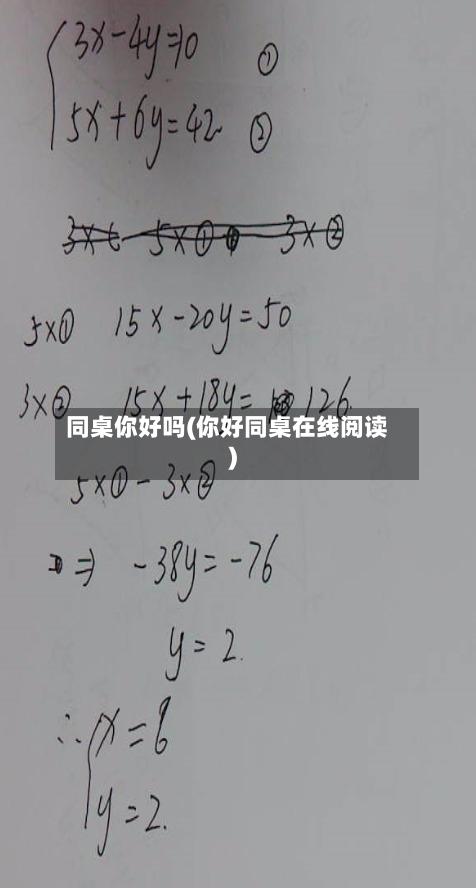 3x-4y=10 ①
5x+6y=42 ②
5×① 3×②
5×① 15x-20y=50
3×② 15x+18y= 126.
同桌你好吗(你好同桌在线阅读
)
5×①-3×②
⇒ -38y=-76
y=2.
∴ x=6
y=2.